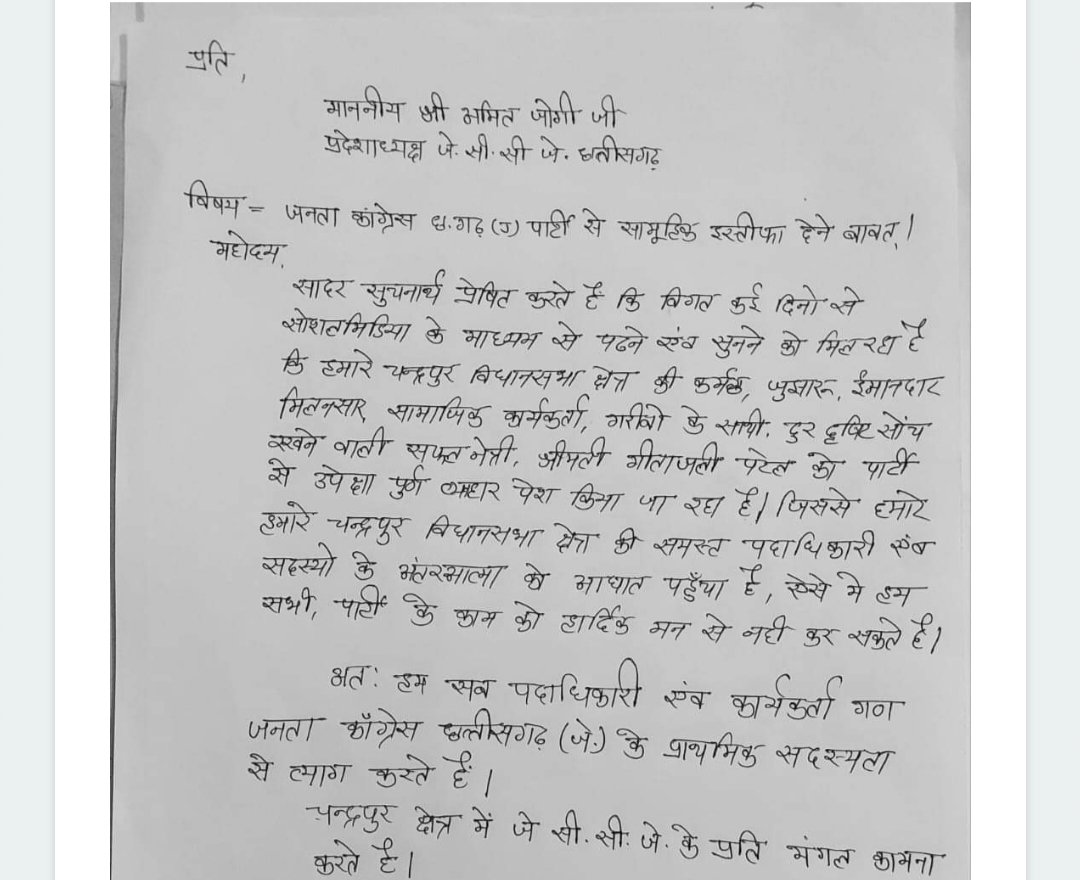 प्रति,
माननीय श्री अमित जोगी जी
प्रदेशाध्यक्ष जे.सी.सी जे. छत्तीसगढ़
विषय = जनता कांग्रेस छ.गढ़ (ज) पार्टी से सामूहिक इस्तीफा देने बावत्।
महोदय,
सादर सुचनार्थ प्रेषित करते हैं कि विगत कई दिनो से
सोशलमिडिया के माध्यम से पढने एंव सुनने को मिल रहा है
कि हमारे चन्द्रपुर विधानसभा क्षेत्र की कर्मठ, जुझारू, ईमानदार
मिलनसार, सामाजिक कार्यकर्ता, गरीबो के साथी, दुर दृष्टि सोंच
रखने वाली सफल नेत्री, श्रीमती गीतांजली पटेल को पार्टी
से उपेक्षा पुर्ण व्यवहार पेश किया जा रहा है। जिससे हमारे
हमारे चन्द्रपुर विधानसभा क्षेत्र की समस्त पदाधिकारी एंव
सदस्यो के अंतरआत्मा को आघात पहुँचा है, ऐसे मे हम
सभी, पार्टी के काम को हार्दिक मन से नही कर सकते हैं।
अतः हम सब पदाधिकारी एंव कार्यकर्ता गण
जनता काँग्रेस छत्तीसगढ़ (जे.) के प्राथमिक सदस्यता
से त्याग करते हैं।
चन्द्रपुर क्षेत्र में जे सी.सी.जे. के प्रति मंगल कामना
करते है।